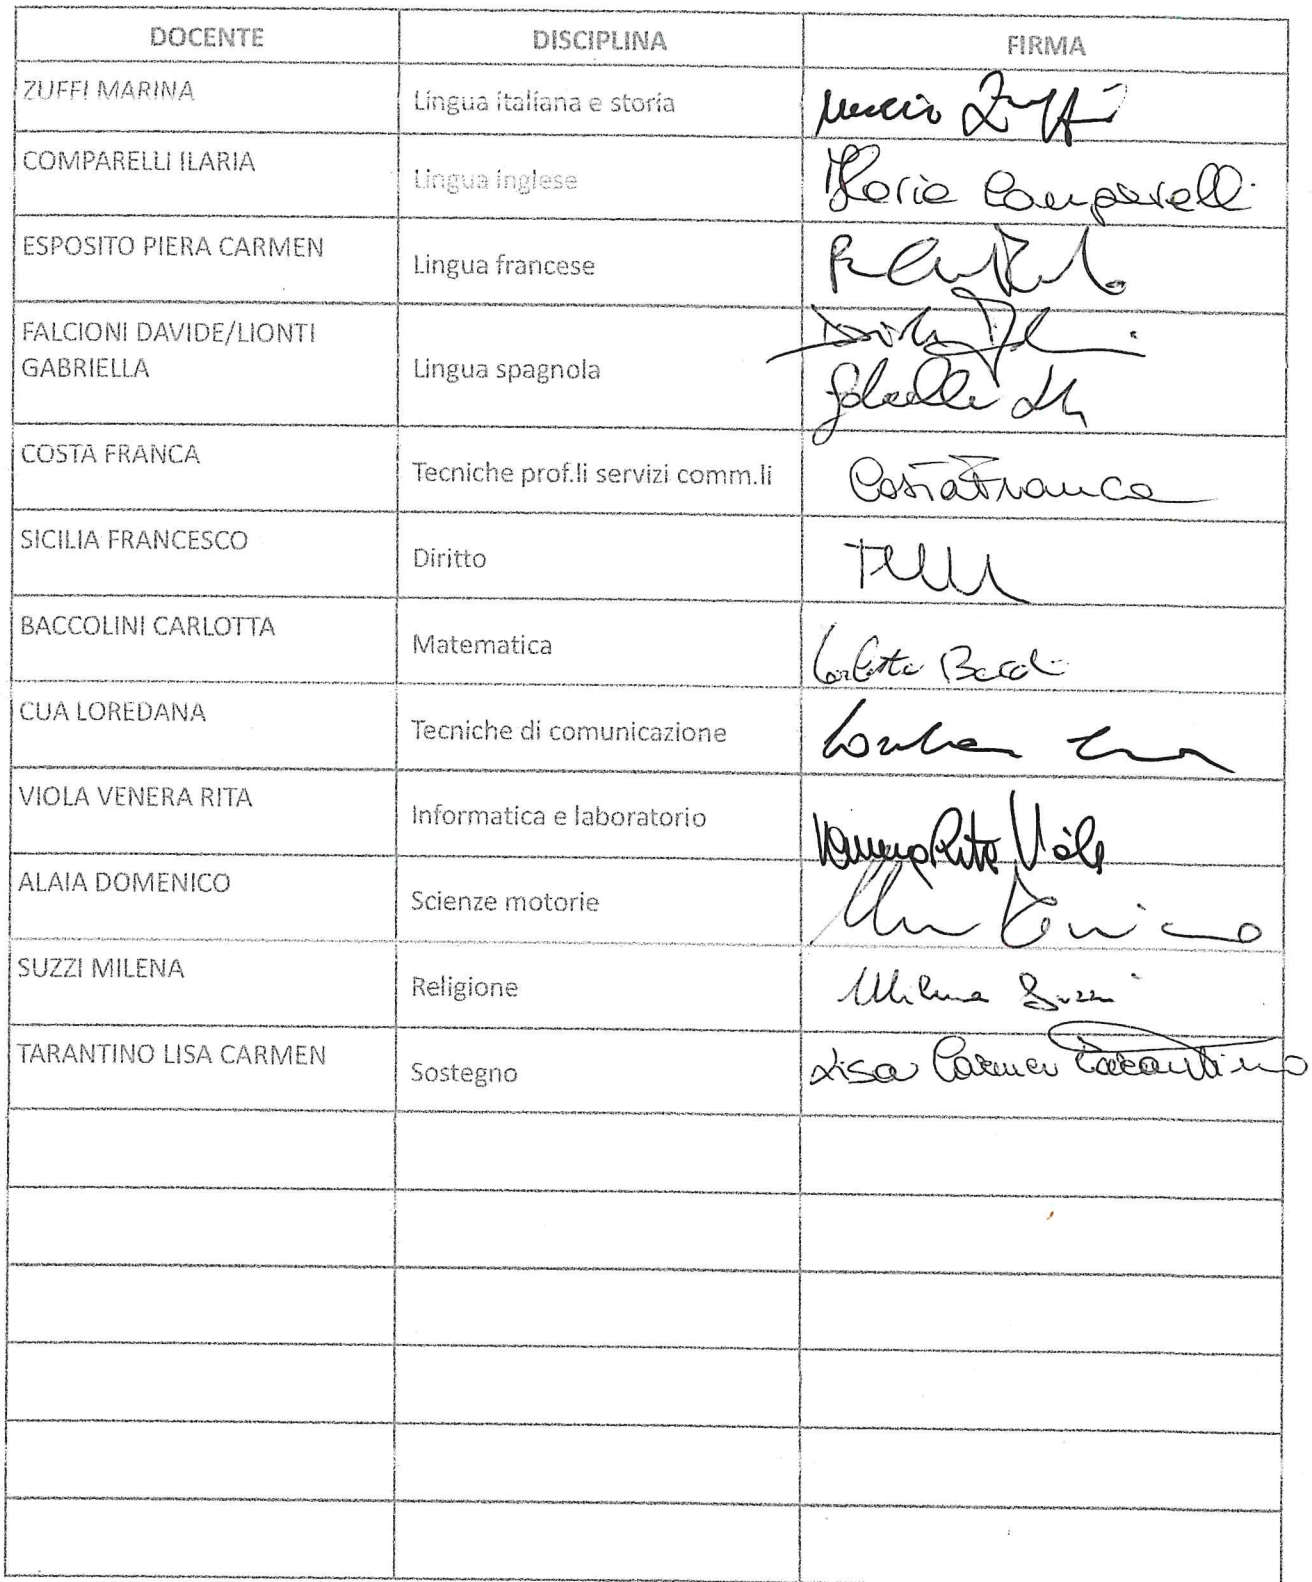 DOCENTE DISCIPLINA FIRMA
ZUFFI MARINA Lingua italiana e storia Zuffi
COMPARELLI ILARIA Lingua inglese Ilaria Comparelli
ESPOSITO PIERA CARMEN Lingua francese
FALCIONI DAVIDE/LIONTI
GABRIELLA Lingua spagnola
COSTA FRANCA Tecniche prof.li servizi comm.li Costa Franca
SICILIA FRANCESCO Diritto
BACCOLINI CARLOTTA Matematica Carlotta
CUA LOREDANA Tecniche di comunicazione
VIOLA VENERA RITA Informatica e laboratorio Venera Rita Viola
ALAIA DOMENICO Scienze motorie
SUZZI MILENA Religione Milena Suzzi
TARANTINO LISA CARMEN Sostegno Lisa Carmen Tarantino